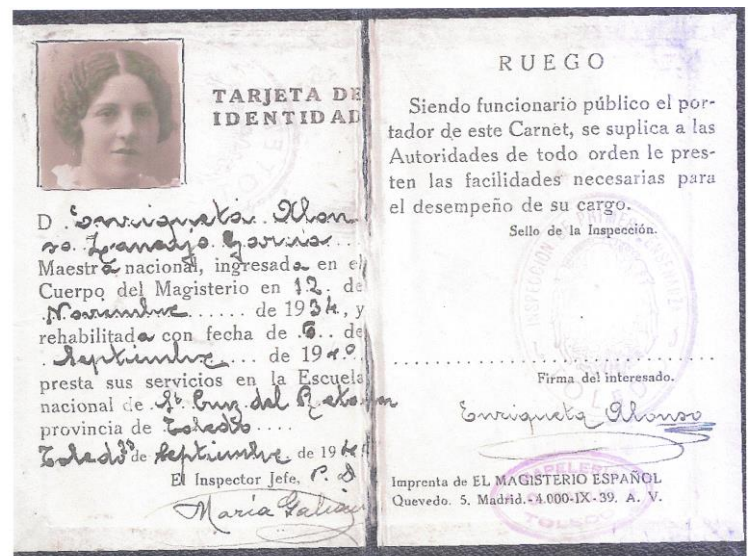 TARJETA DE
IDENTIDAD
D. Enriqueta Alon
so García
Maestra nacional, ingresada en el
Cuerpo del Magisterio en 12 de
Noviembre de 1934, y
rehabilitada con fecha de de
Septiembre de 1940
presta sus servicios en la Escuela
nacional de Sta Cruz del Retamar
provincia de Toledo
Toledo de Septiembre de 194
El Inspector Jefe, P. D
María
RUEGO
Siendo funcionario público el por-
tador de este Carnet, se suplica a las
Autoridades de todo orden le pres-
ten las facilidades necesarias para
el desempeño de su cargo.
Sello de la Inspección.
INSPECCIÓN DE PRIMERA ENSEÑANZA
TOLEDO
Firma del interesado.
Enriqueta Alonso
PAPELERIA
TOLEDO
Imprenta de EL MAGISTERIO ESPAÑOL
Quevedo. 5. Madrid.-4.000-IX-39. A. V.